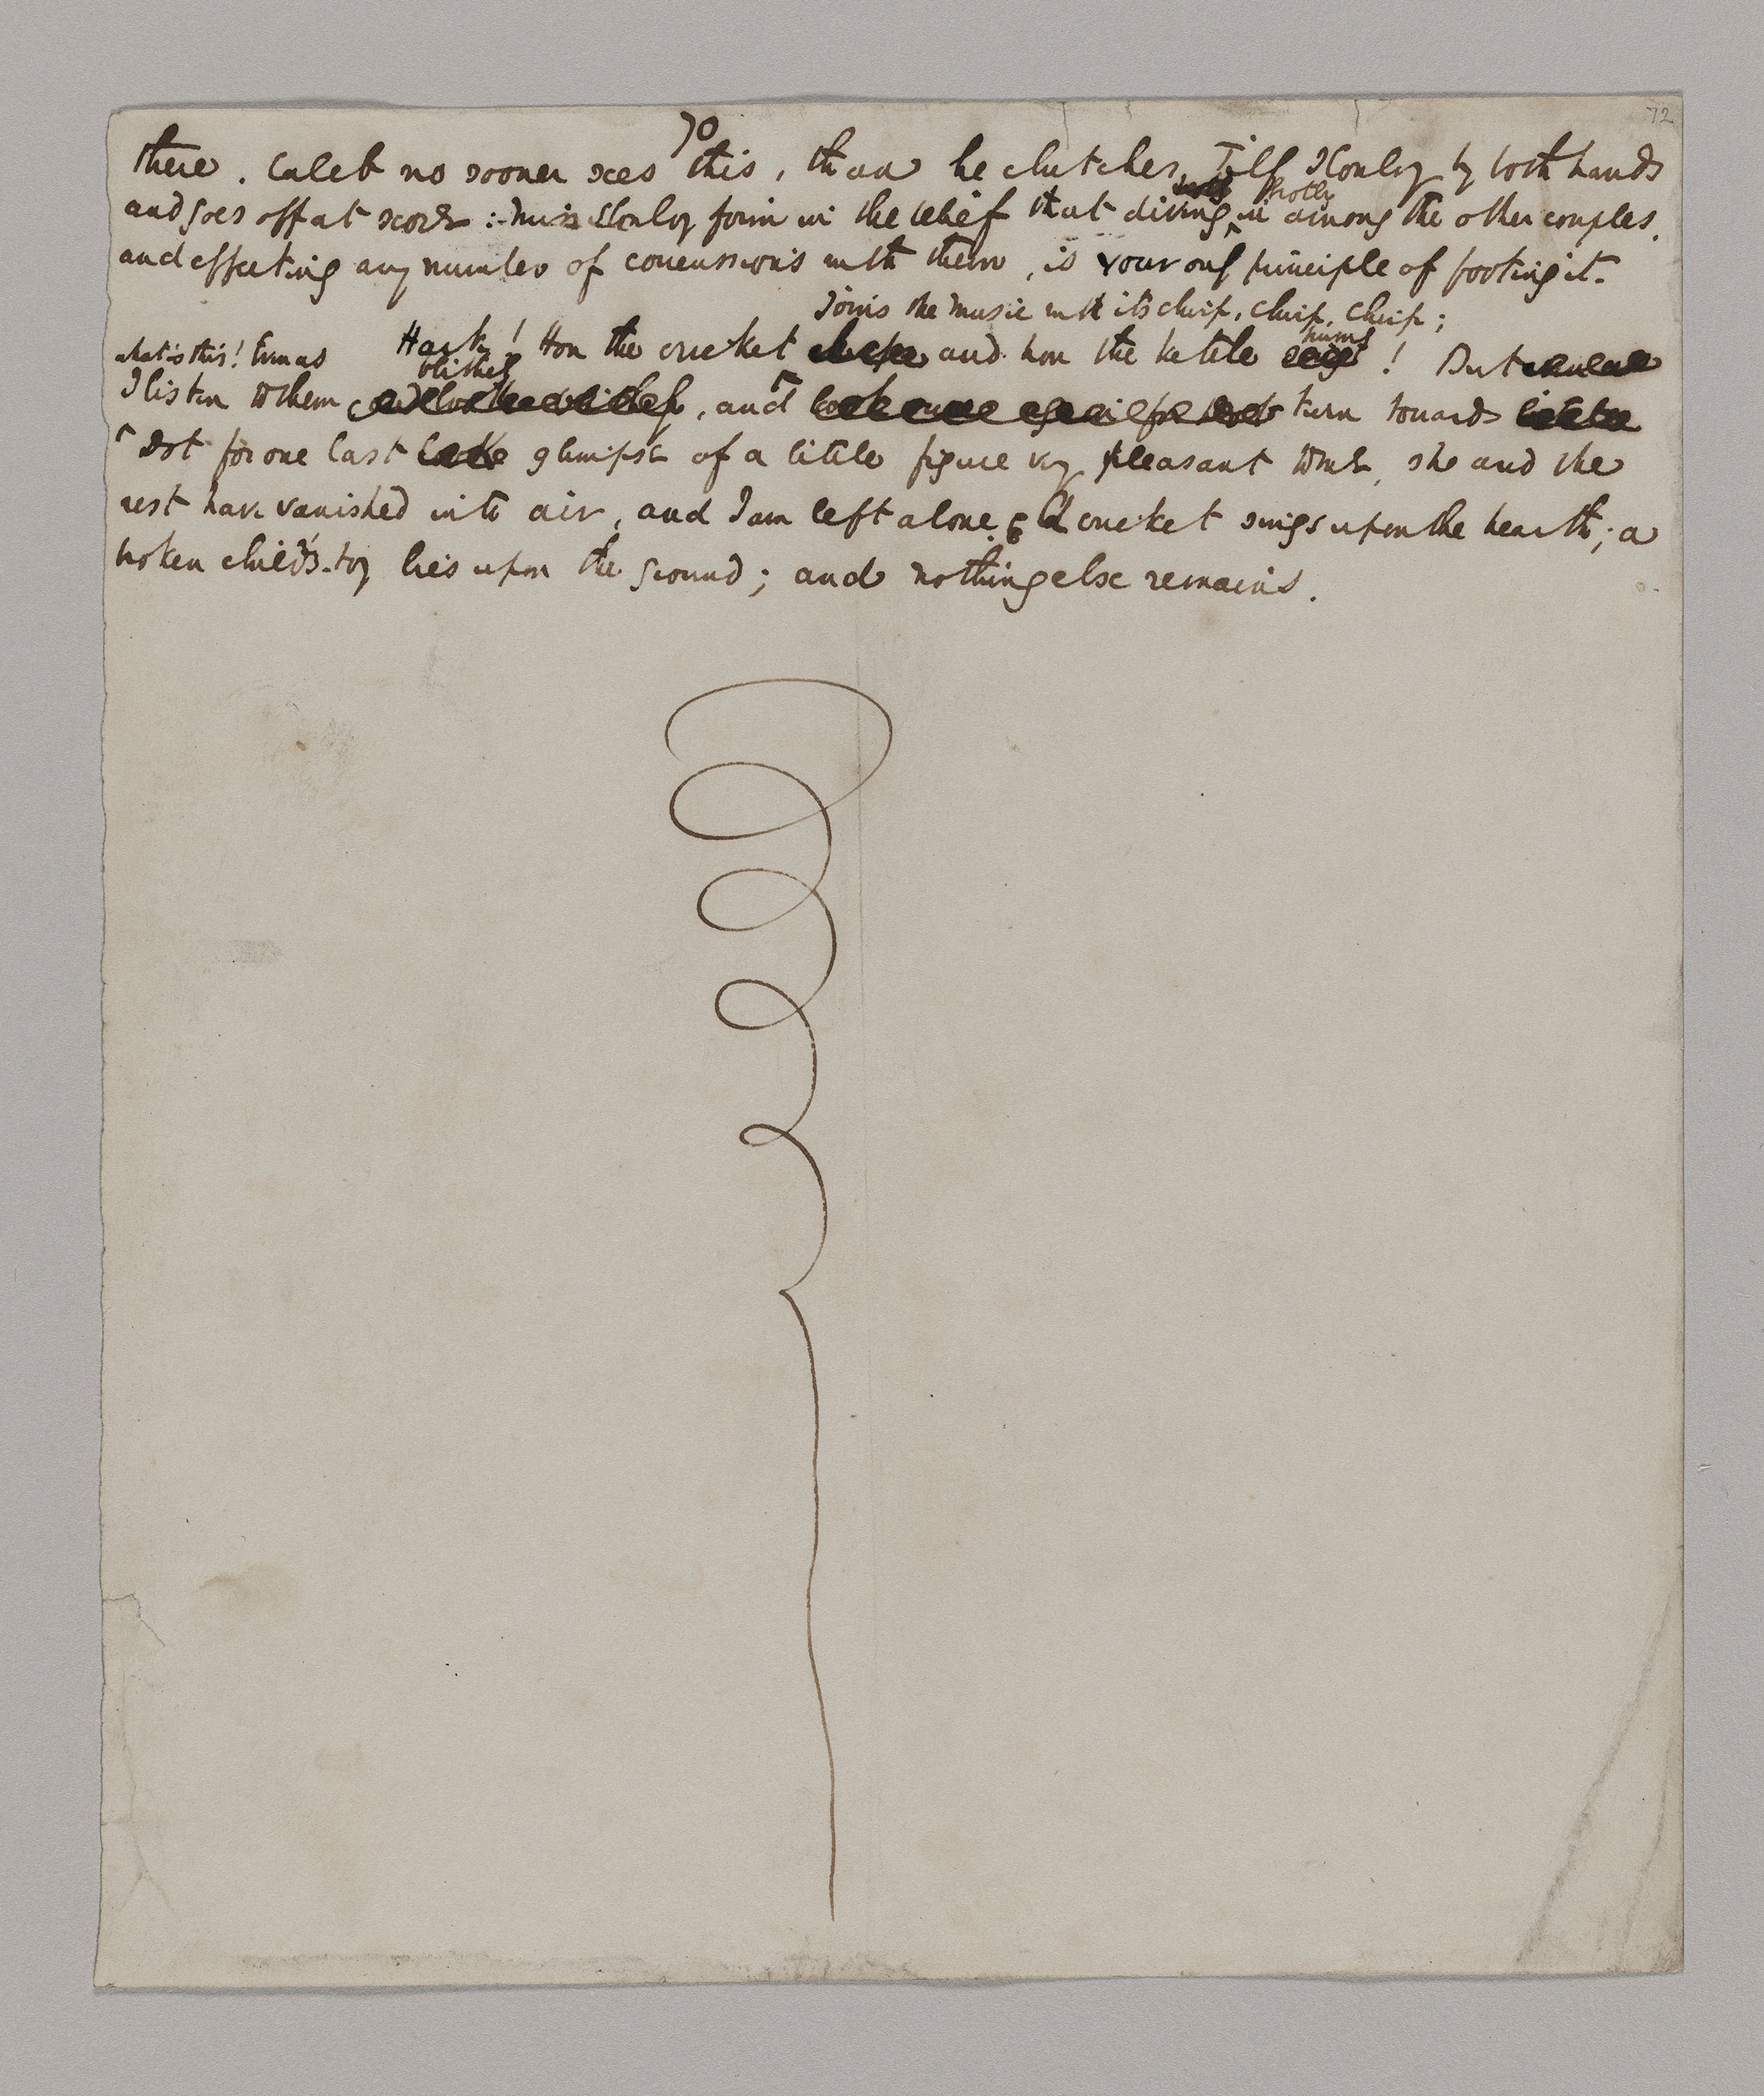 70
72
there. Caleb no sooner sees this, than he clutches Tilly Slowboy by both hands
and goes off at score: Miss Slowboy firm in the belief that diving hotly in among the other couples,
and effecting any number of concussions with them, is your only principle of footing it.
joins the music with its chirp, chirp, chirp;
Hark! How the cricket and how the kettle hums! But
what is this! Even as
I listen to them blithely, and turn towards
Dot for one last glimpse of a little figure very pleasant to me, she and the
rest have vanished into air, and I am left alone. A cricket sings upon the hearth; a
broken child's-toy lies upon the ground; and nothing else remains.